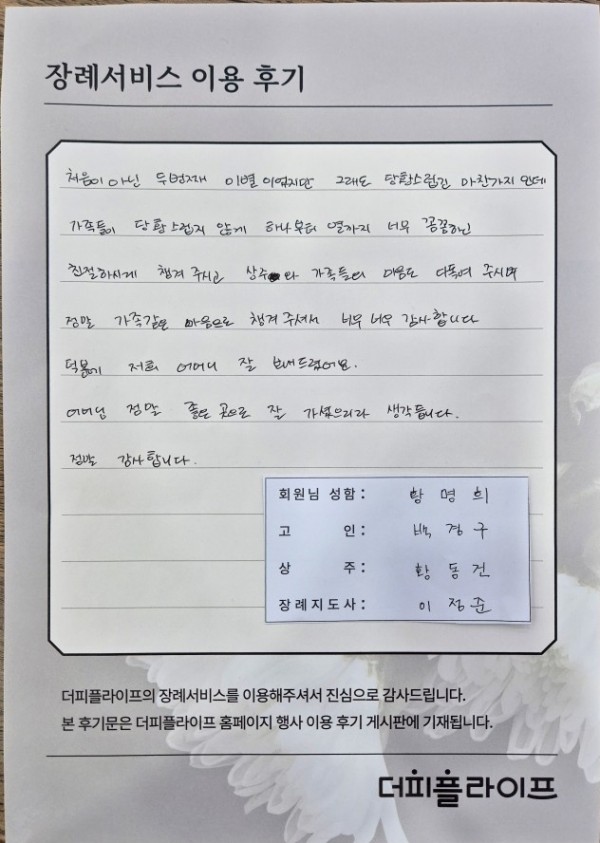 장례서비스 이용 후기
처음이 아닌 두번째 이별이었지만 그래도 당황스럽긴 마찬가지 인데
가족들이 당황스럽지 않게 하나부터 열까지 너무 꼼꼼하닌
친절하시게 챙겨 주시고 상주와 가족들의 마음도 다독여 주시며
정말 가족같은 마음으로 챙겨 주셔서 너무 너무 감사합니다
덕분에 저희 어머니 잘 보내드렸어요.
어머님 정말 좋은 곳으로 잘 가셨으리라 생각듭니다.
정말 감사합니다.
회원님 성함: 황명희
고인: 백경구
상주: 황동건
장례지도사: 이정준
더피플라이프의 장례서비스를 이용해주셔서 진심으로 감사드립니다.
본 후기문은 더피플라이프 홈페이지 행사 이용 후기 게시판에 기재됩니다.
더피플라이프